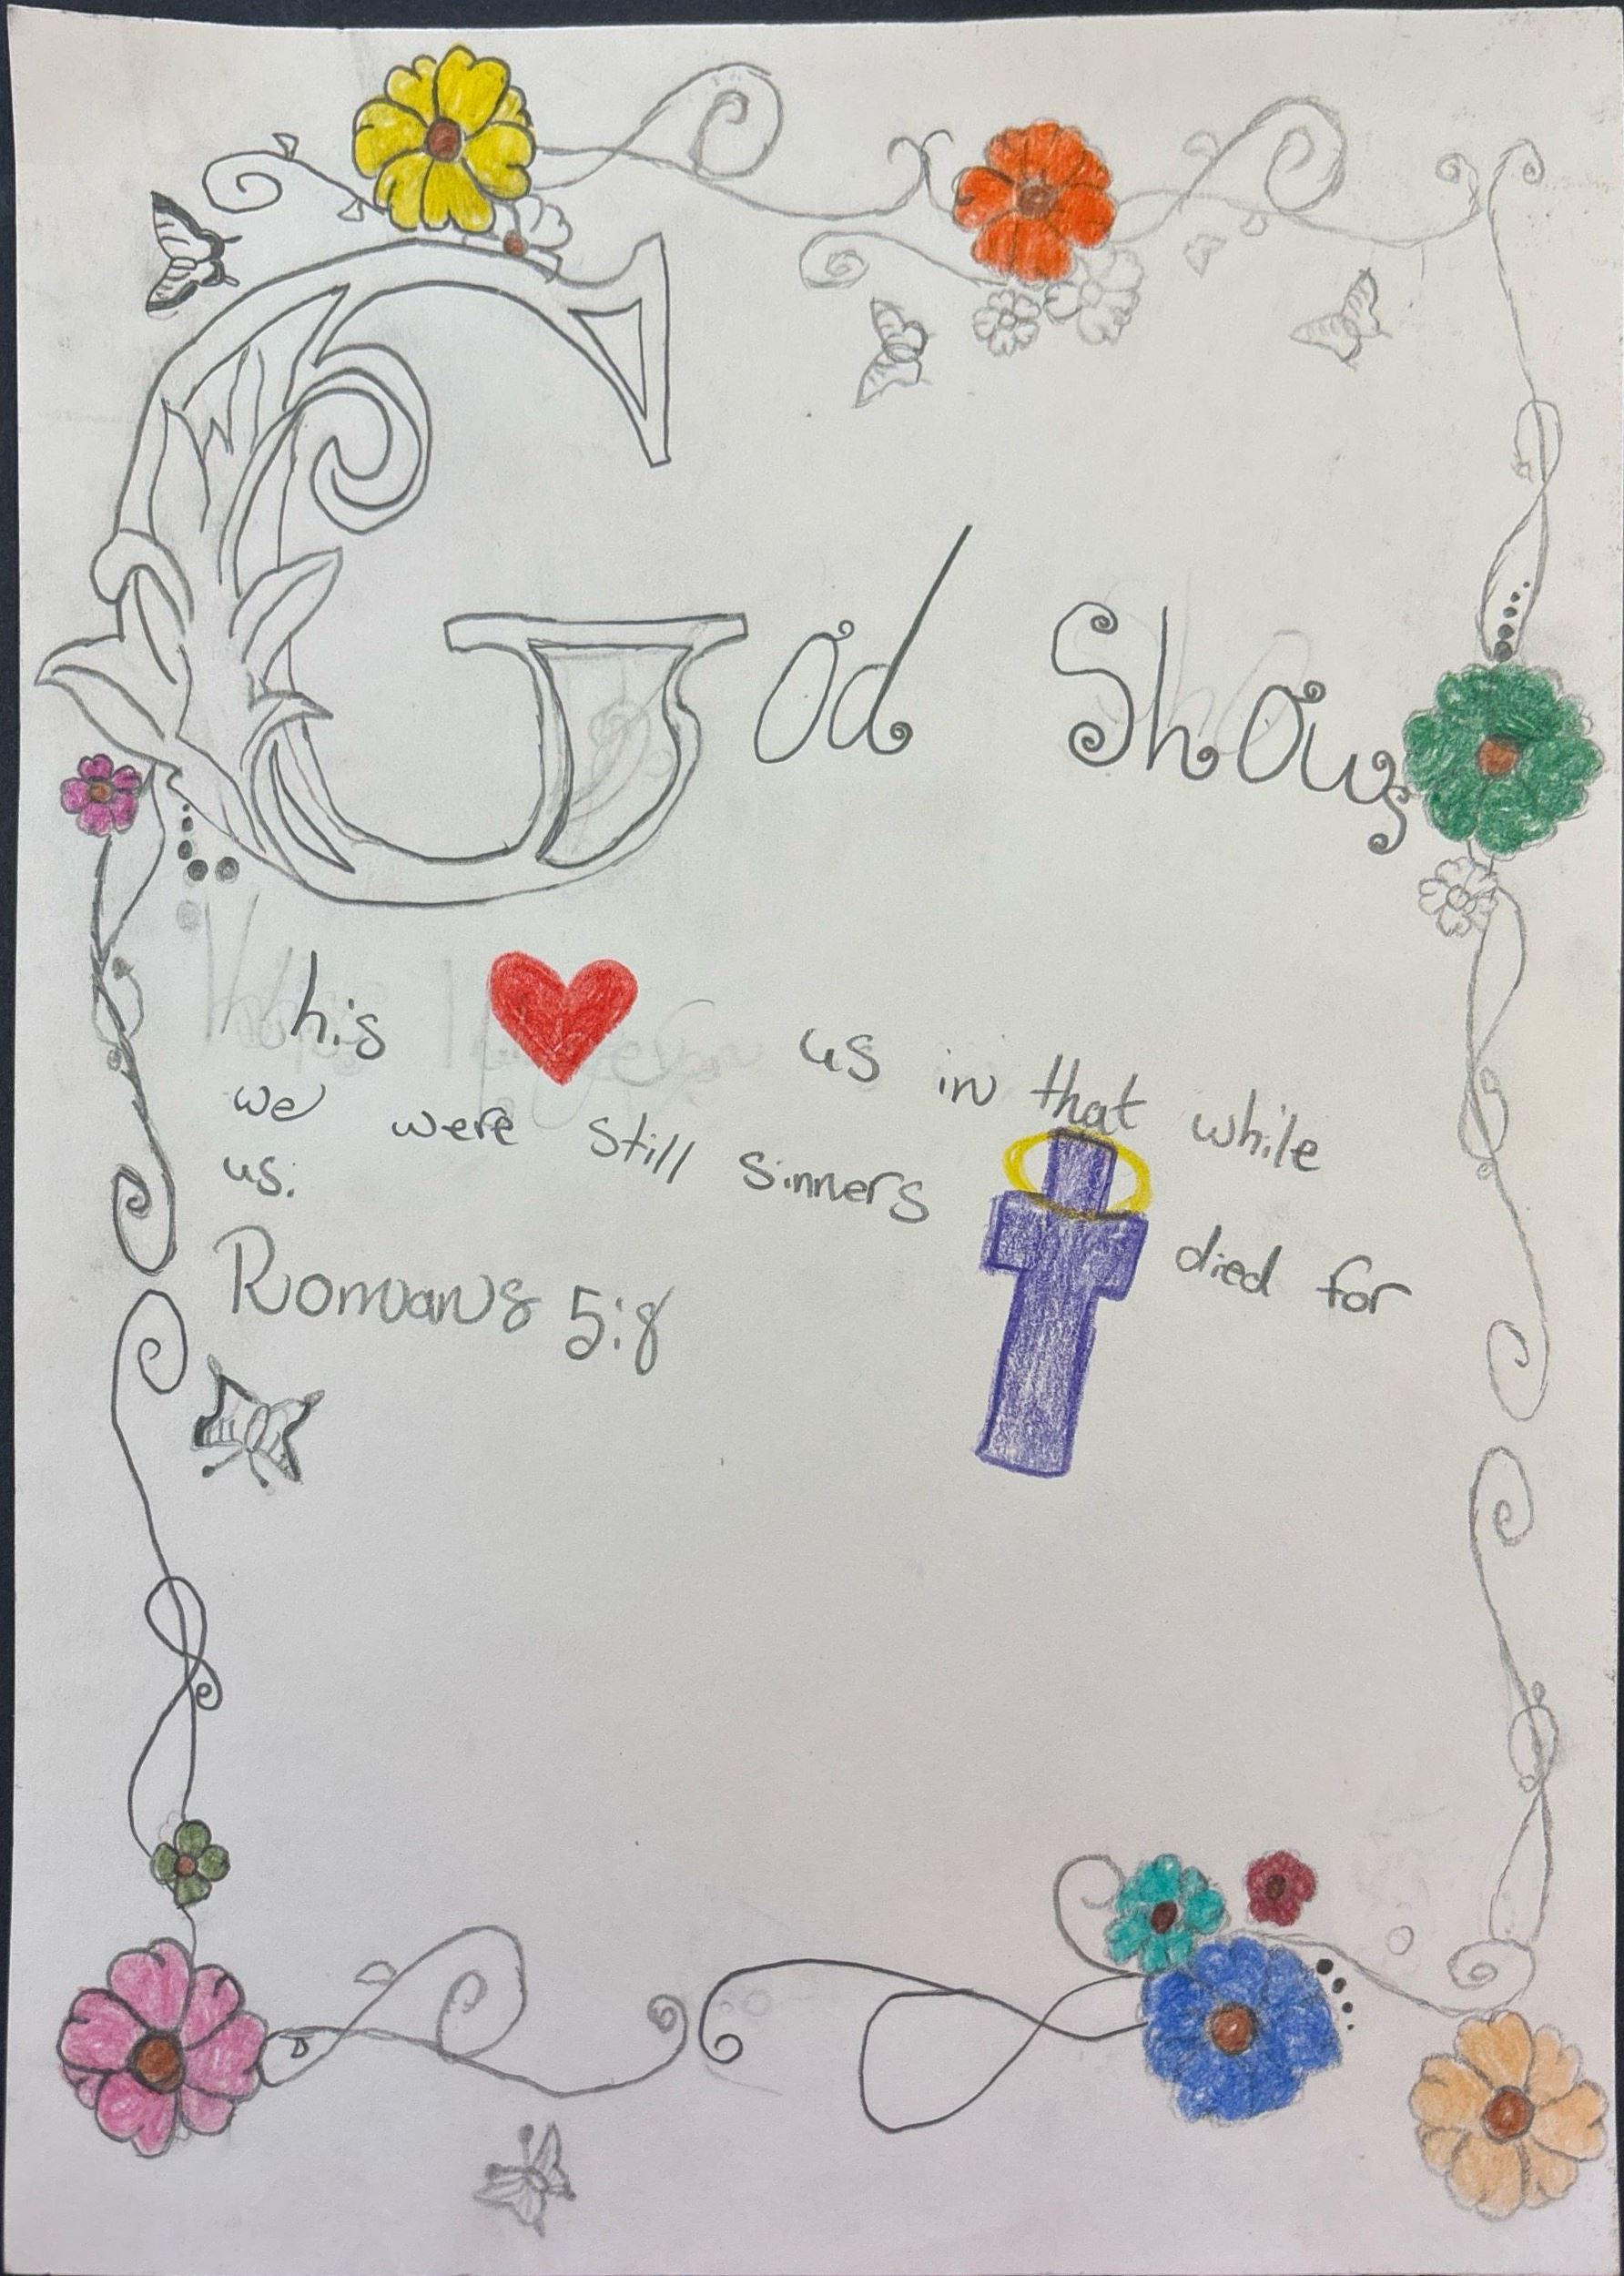 God Shows
his us in that while
we were still sinners died for
us.
Romans 5:8